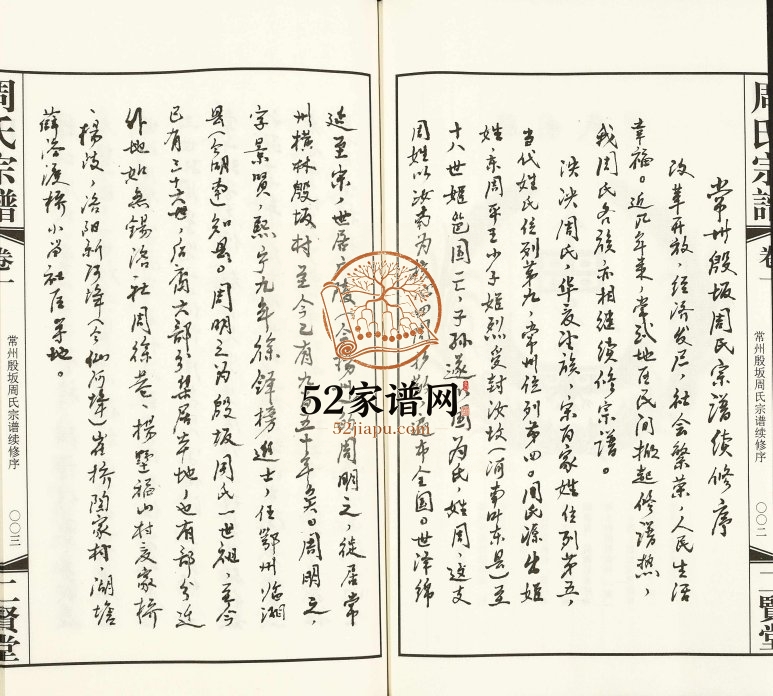 周氏宗譜
卷一
常州殷坂周氏宗谱续修序
〇〇二
二賢堂
常州殷坂周氏宗谱续修序
改革开放，经济发展，社会繁荣，人民生活
幸福。近几年来，常武地区民间掀起修谱热，
我周氏各族亦相继续修宗谱。
泱泱周氏，华夏外族，宋百家姓位列第五，
当代姓氏位列第九，常州位列第四。周氏源出姬
姓，东周平王少子姬烈受封汝坟（河南叶东县）至
十八世姬邕国亡，子孙遂以国为氏，姓周，这支
周姓以汝南为
布全国。世泽绵
延至宋，世居广陵（今扬州
周明之，徙居常
州横林殷坂村至今已有九百五十年矣。周明之，
字景贤，熙宁九年徐铎榜进士，任鄂州临湘
县（今湖南）知县。周明之为殷坂周氏一世祖，至今
已有三十六世，后裔大部分聚居本地，也有部分迁
外地如无锡洛社周徐巷、杨墅福山村夏家桥
、杨歧，洛阳新河绛（今仙河绛）崔桥陶家村，湖塘
薛洛渡桥小留社区等地。
周氏宗譜
卷一
常州殷坂周氏宗谱续修序
〇〇三
二賢堂
52家谱网
52jiapu.com